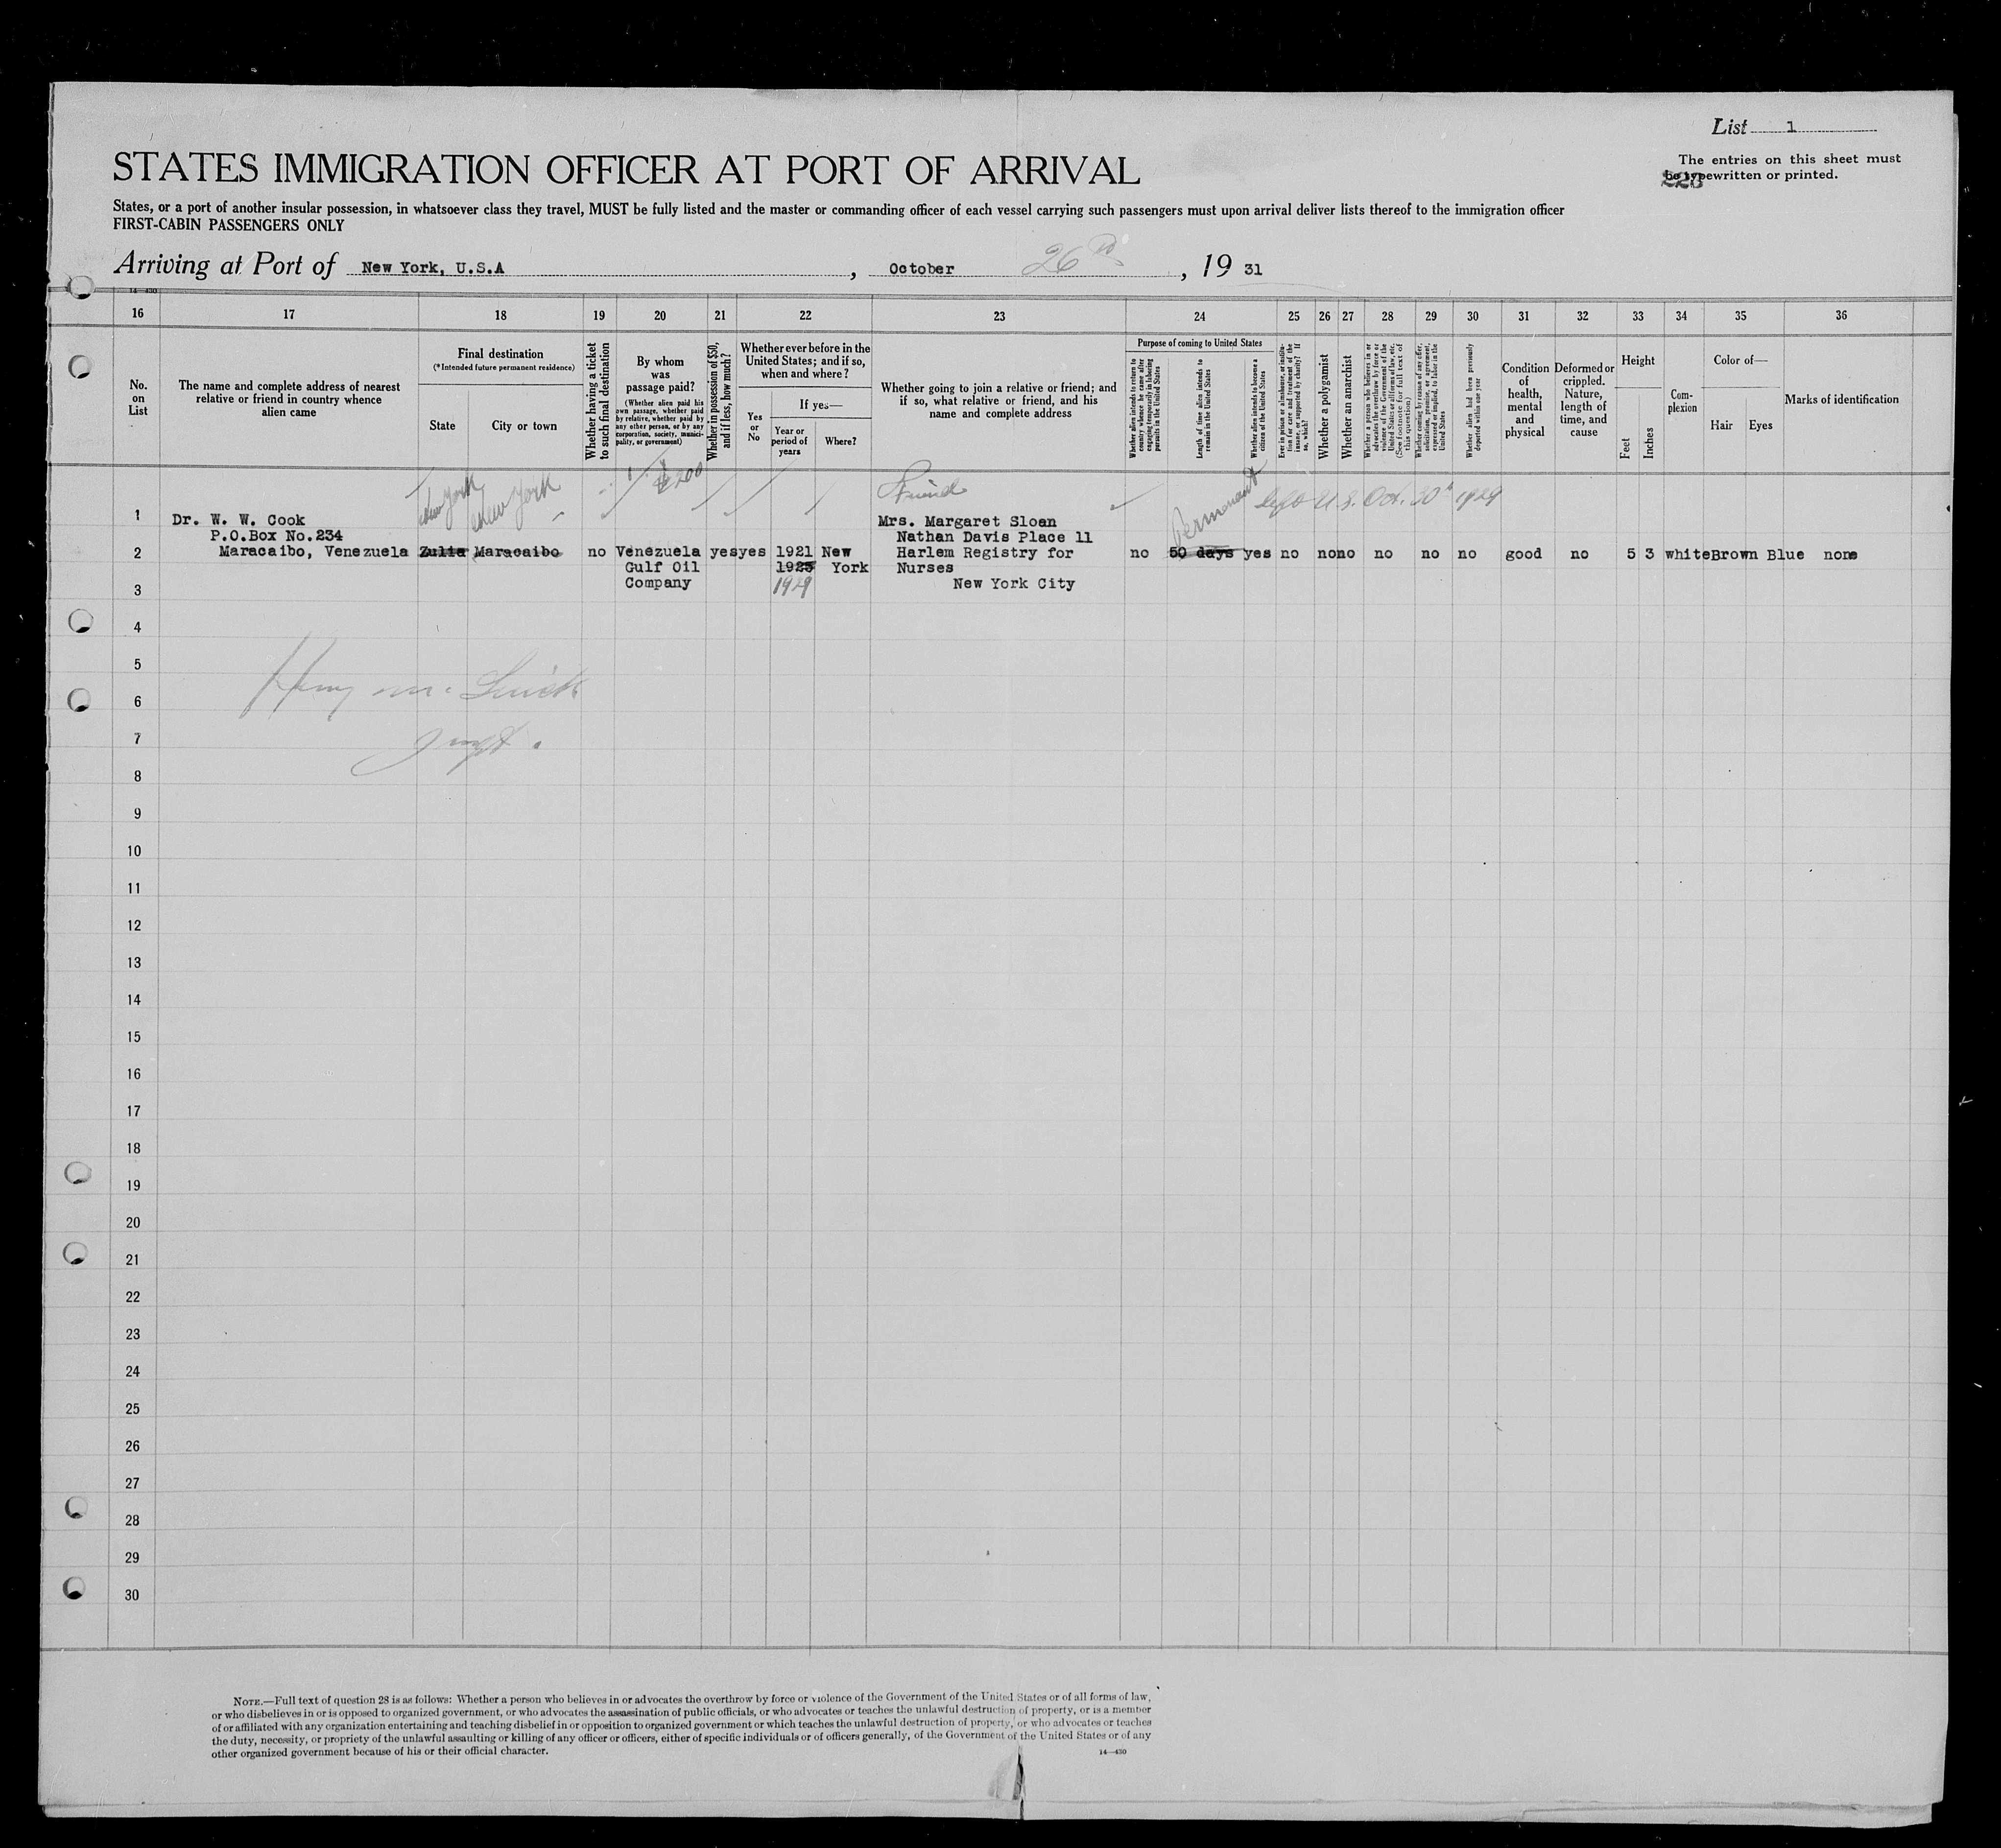 List 1
The entries on this sheet must
be typewritten or printed.
STATES IMMIGRATION OFFICER AT PORT OF ARRIVAL
States, or a port of another insular possession, in whatsoever class they travel, MUST be fully listed and the master or commanding officer of each vessel carrying such passengers must upon arrival deliver lists thereof to the immigration officer
FIRST-CABIN PASSENGERS ONLY
Arriving at Port of New York, U.S.A , October 26th , 19 31
14—430
16 17 18 19 20 21 22 23 24 25 26 27 28 29 30 31 32 33 34 35 36
No.
on
List
The name and complete address of nearest
relative or friend in country whence
alien came
Final destination
(*Intended future permanent residence)
State
City or town
Whether having a ticket
to such final destination
By whom
was
passage paid?
(Whether alien paid his
own passage, whether paid
by relative, whether paid by
any other person, or by any
corporation, society, munici-
pality, or government)
Whether in possession of $50,
and if less, how much?
Whether ever before in the
United States; and if so,
when and where?
Yes
or
No
If yes—
Year or
period of
years
Where?
Whether going to join a relative or friend; and
if so, what relative or friend, and his
name and complete address
Purpose of coming to United States
Whether alien intends to return to
country whence he came after
engaging temporarily in laboring
pursuits in the United States
Length of time alien intends to
remain in the United States
Whether alien intends to become a
citizen of the United States
Ever in prison or almshouse, or institu-
tion for care and treatment of the
insane, or supported by charity? If
so, which?
Whether a polygamist
Whether an anarchist
Whether a person who believes in or
advocates the overthrow by force or
violence of the Government of the
United States or all forms of law, etc.
(See footnote for full text of
this question)
Whether coming by reason of any offer,
solicitation, promise, or agreement,
expressed or implied, to labor in the
United States
Whether alien had been previously
deported within one year
Condition
of
health,
mental
and
physical
Deformed or
crippled.
Nature,
length of
time, and
cause
Height
Feet
Inches
Com-
plexion
Color of—
Hair
Eyes
Marks of identification
New York New York $200 Friend Permanent Left U.S. Oct. 30th 1929
1
Dr. W. W. Cook
P.O.Box No.234
Mrs. Margaret Sloan
Nathan Davis Place 11
2 Maracaibo, Venezuela Zulia Maracaibo no Venezuela yes yes 1921 New Harlem Registry for no 50 days yes no no no no no no good no 5 3 white Brown Blue none
Gulf Oil 1925 York Nurses
3 Company 1929 New York City
4
5
6
7
8
9
10
11
12
13
14
15
16
17
18
19
20
21
22
23
24
25
26
27
28
29
30
NOTE.—Full text of question 28 is as follows: Whether a person who believes in or advocates the overthrow by force or violence of the Government of the United States or of all forms of law,
or who disbelieves in or is opposed to organized government, or who advocates the assassination of public officials, or who advocates or teaches the unlawful destruction of property, or is a member
of or affiliated with any organization entertaining and teaching disbelief in or opposition to organized government or which teaches the unlawful destruction of property, or who advocates or teaches
the duty, necessity, or propriety of the unlawful assaulting or killing of any officer or officers, either of specific individuals or of officers generally, of the Government of the United States or of any
other organized government because of his or their official character.
14—430